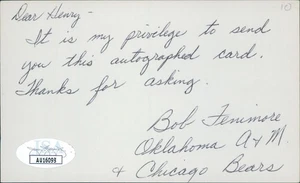 103
Dear Henry -
It is my privilege to send
you this autographed card.
Thanks for asking.
Bob Fenimore
Oklahoma A & M.
& Chicago Bears
JSA
AU16098